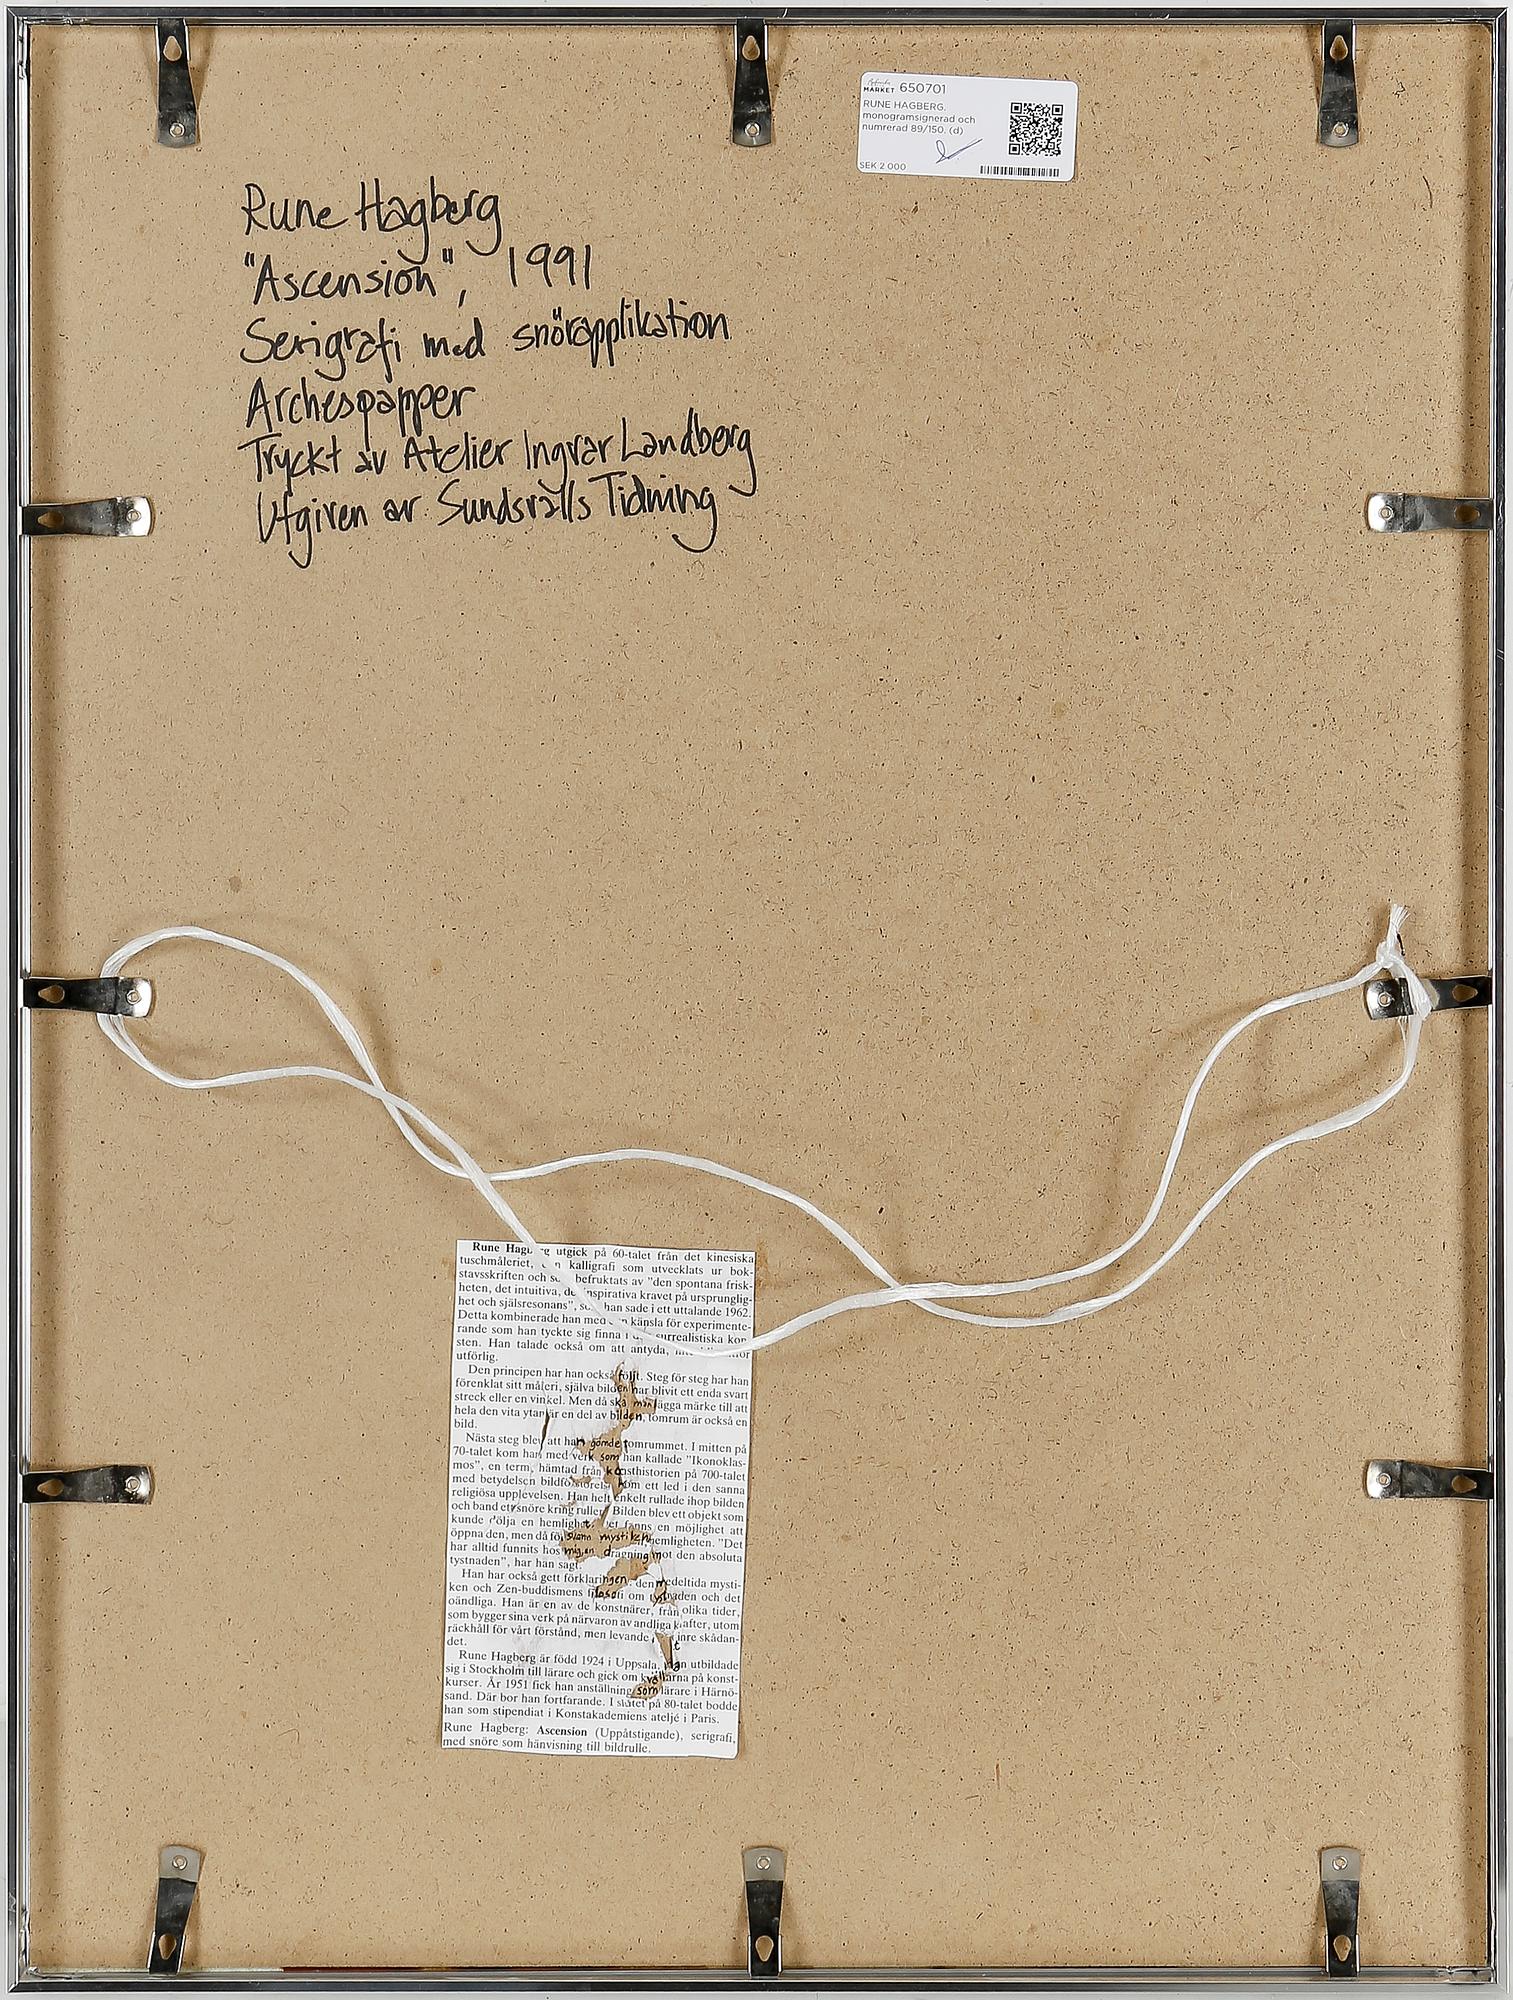 MARKET 650701
RUNE HAGBERG.
monogramsignerad och
numrerad 89/150. (d)
SEK 2 000
Rune Hagberg
"Ascension", 1991
Serigrafi med snörapplikation
Archespapper
Tryckt av Atelier Ingvar Landberg
Utgiven av Sundsvalls Tidning
Rune Hagberg utgick på 60-talet från det kinesiska
tuschmåleriet, en kalligrafi som utvecklats ur bok-
stavsskriften och som befruktats av "den spontana frisk-
heten, det intuitiva, det inspirativa kravet på ursprunglig-
het och själsresonans", som han sade i ett uttalande 1962.
Detta kombinerade han med en känsla för experimente-
rande som han tyckte sig finna i den surrealistiska kon-
sten. Han talade också om att antyda, inte bli
utförlig.
Den principen har han också följt. Steg för steg har han
förenklat sitt måleri, själva bilden har blivit ett enda svart
streck eller en vinkel. Men då ska man lägga märke till att
hela den vita ytan är en del av bilden, tomrum är också en
bild.
Nästa steg blev att han gömde tomrummet. I mitten på
70-talet kom han med verk som han kallade "Ikonoklas-
mos", en term, hämtad från konsthistorien på 700-talet
med betydelsen bildförstörelse som ett led i den sanna
religiösa upplevelsen. Han helt enkelt rullade ihop bilden
och band ett snöre kring rullen. Bilden blev ett objekt som
kunde dölja en hemlighet. Det fanns en möjlighet att
öppna den, men då försvann mystiken hemligheten. "Det
har alltid funnits hos mig en dragning mot den absoluta
tystnaden", har han sagt.
Han har också gett förklaringen: den medeltida mysti-
ken och Zen-buddismens filosofi om tystnaden och det
oändliga. Han är en av de konstnärer, från olika tider,
som bygger sina verk på närvaron av andliga krafter, utom
räckhåll för vårt förstånd, men levande inre skådan-
det.
Rune Hagberg är född 1924 i Uppsala. Han utbildade
sig i Stockholm till lärare och gick om kvällarna på konst-
kurser. År 1951 fick han anställning som lärare i Härnö-
sand. Där bor han fortfarande. I slutet på 80-talet bodde
han som stipendiat i Konstakademiens ateljé i Paris.
Rune Hagberg: Ascension (Uppåtstigande), serigrafi,
med snöre som hänvisning till bildrulle.